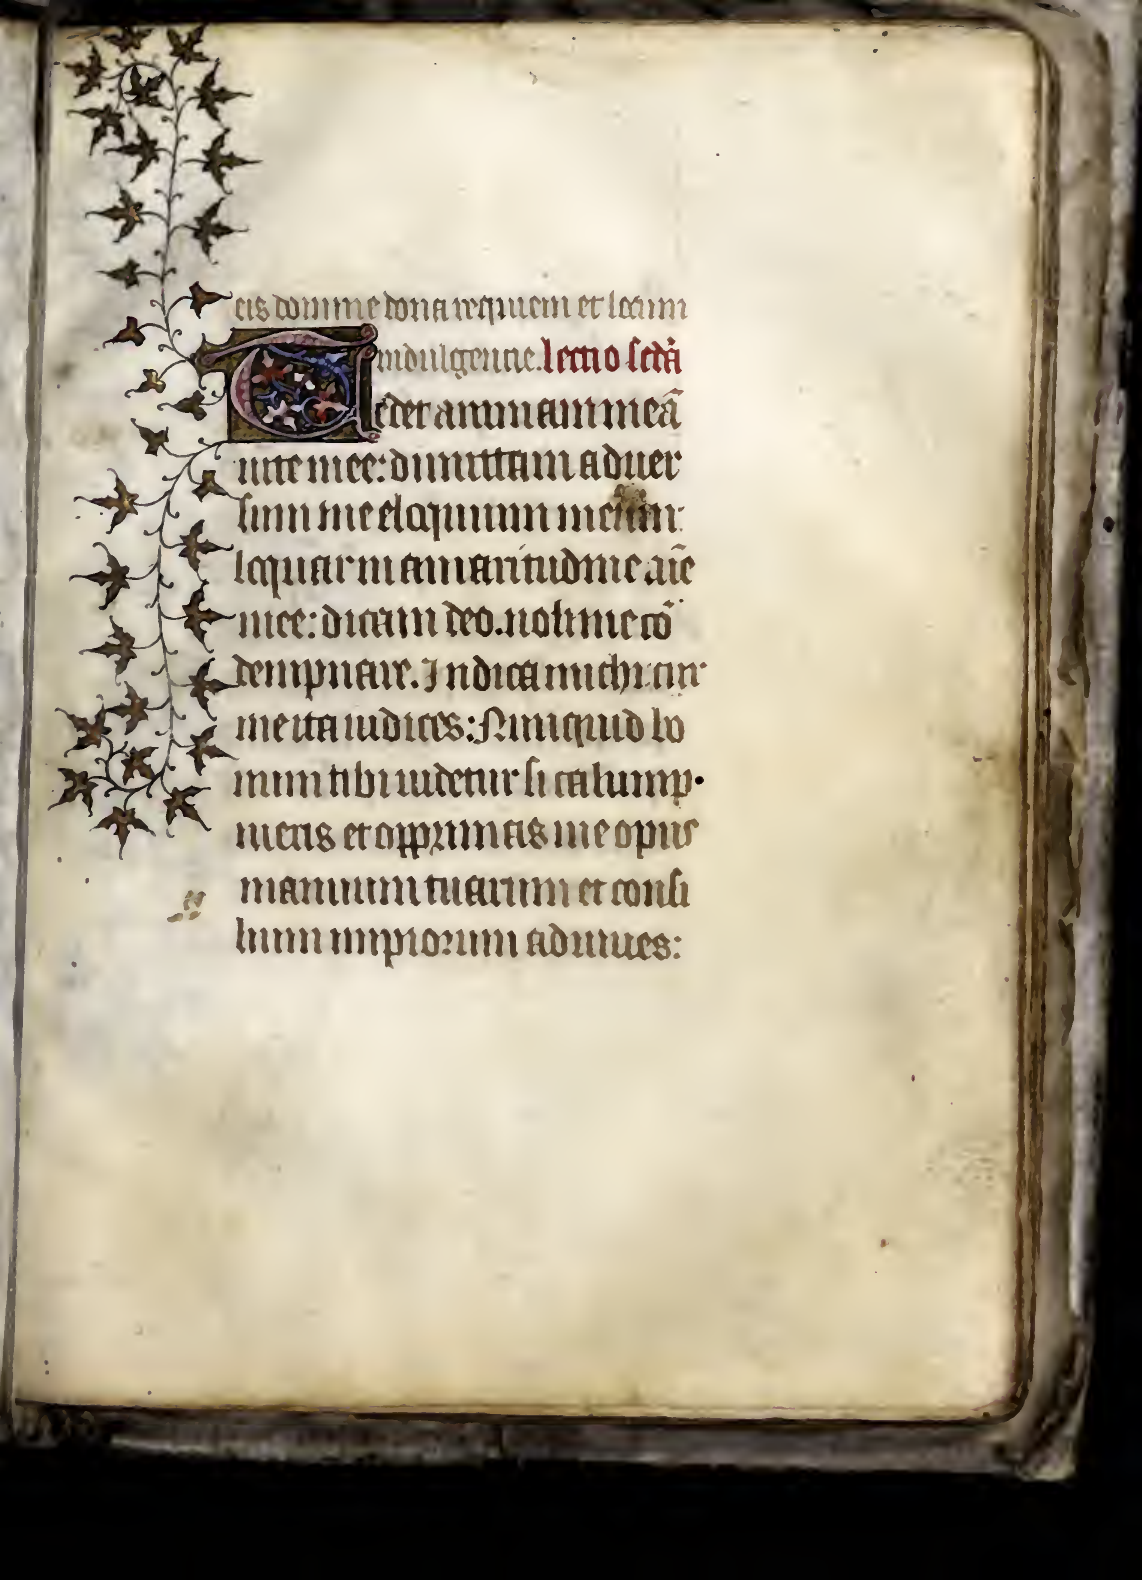 eis domine dona requiem et locum
indulgencie. lectio scda
Tedet animam meā
uite mee: dimittam aduer
sum me eloquium meum:
loquar in amaritudine aīe
mee: dicam deo. noli me cō
dempnare. Indica michi cur
me ita iudices: Numquid bo
num tibi uidetur si calump
nieris et opprimas me opus
manuum tuarum et consi
lium impiorum adiuues: